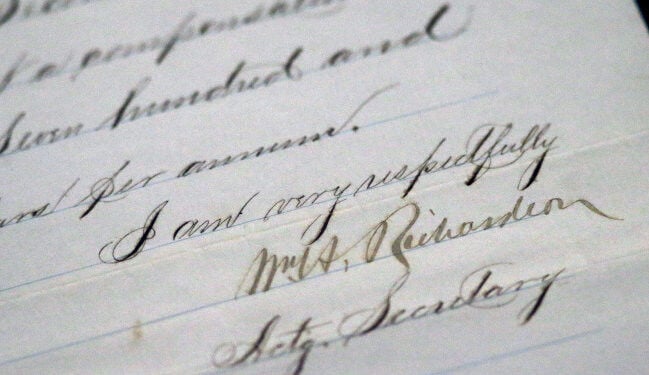 a compensation
Seven hundred and
per annum.
I am very respectfully
Wm. A. Richardson
Actg. Secretary